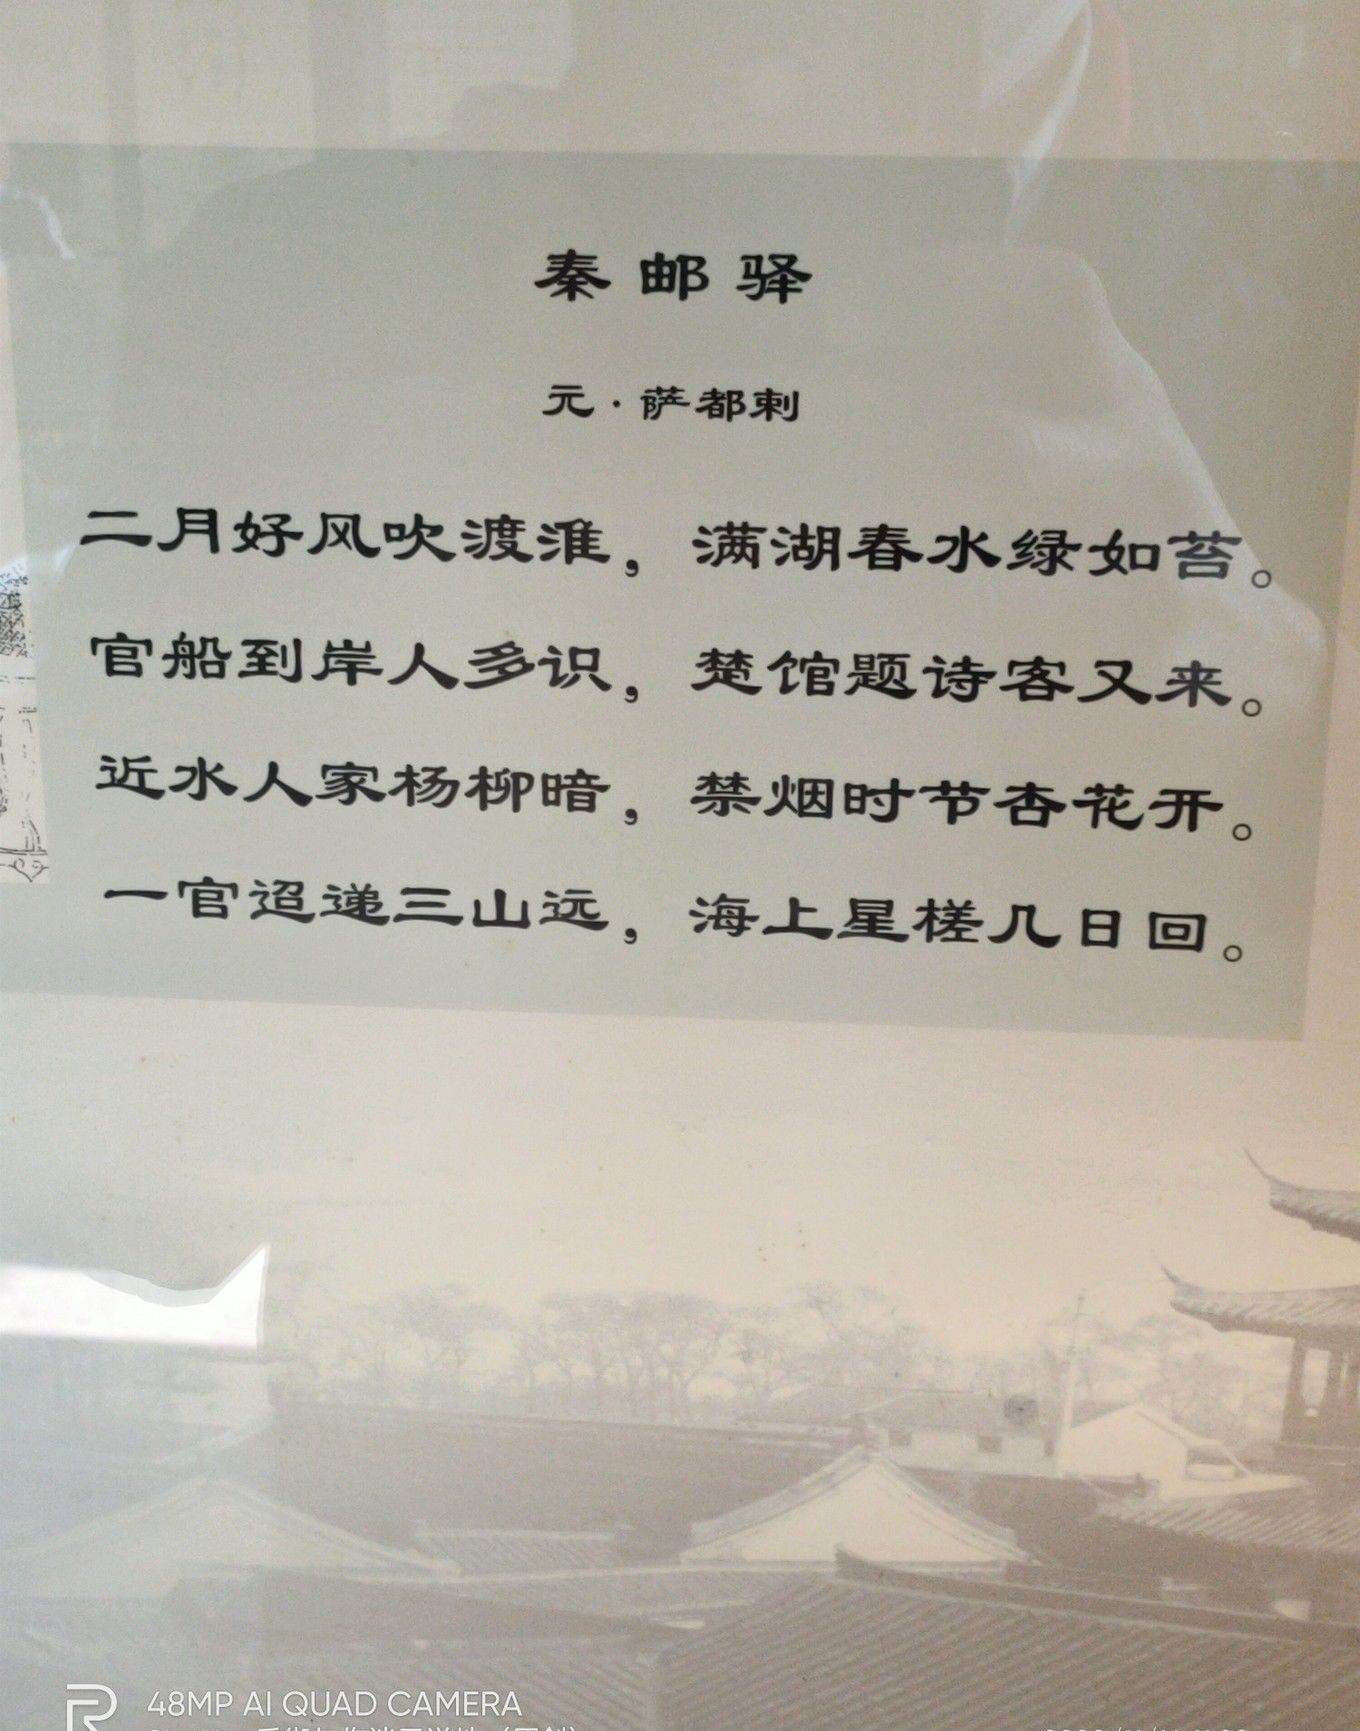 秦邮驿
元·萨都剌
二月好风吹渡淮，满湖春水绿如苔。
官船到岸人多识，楚馆题诗客又来。
近水人家杨柳暗，禁烟时节杏花开。
一官迢递三山远，海上星槎几日回。
48MP AI QUAD CAMERA